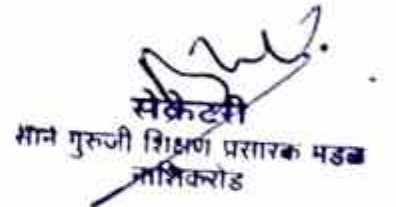 सेक्रेटरी
साने गुरुजी शिक्षण प्रसारक मंडळ
नाशिकरोड